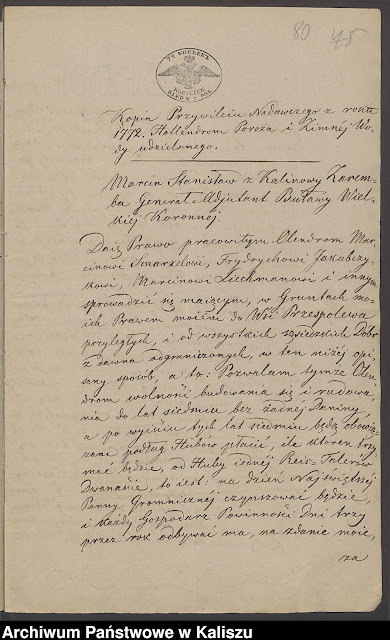 80 45
7½ KOPIEIEK
Kopia Przywileiu Nadawczego z roku
1772. Hollendrom Poroza i Zimnéy Wo-
dy udzielonego.
Marcin Stanisław z Kalinowy Zarem-
ba Generał-Adjutant Buławy Wiel-
kiej Koronnéj.
Daię Prawo pracowitym Olendrom Mar-
cinowi Smarzelowi, Frydrychowi Jakubczy-
kowi, Marcinowi Liechmanowi i innym
sprowadzić się maiącym, w Gruntach mo-
ich Prawem moiém do Wsi Przespolewa
przyległych, i od wszystkich sąsiedzkich Dóbr
z dawna odgraniczonych, w ten niżéj opi-
sany sposób, a to: Pozwalam tymże Olen-
drom wolności budowania się i rudowa-
nia do lat siedmiu bez żadnéj Daniny,
a po wyiściu tych lat siedmiu będą obowią-
zani podług Hubów płacić, ile któren trzy-
mać będzie, od Huby iednéj Reis-Talerów
Dwanaście, to iest: na dzień Najświętszéj
Panny Gromnicznej czynszować będzie,
i każdy Gospodarz Powinności Dni trzy
przez rok odbywać ma, na zdanie moie,
za
Archiwum Państwowe w Kaliszu